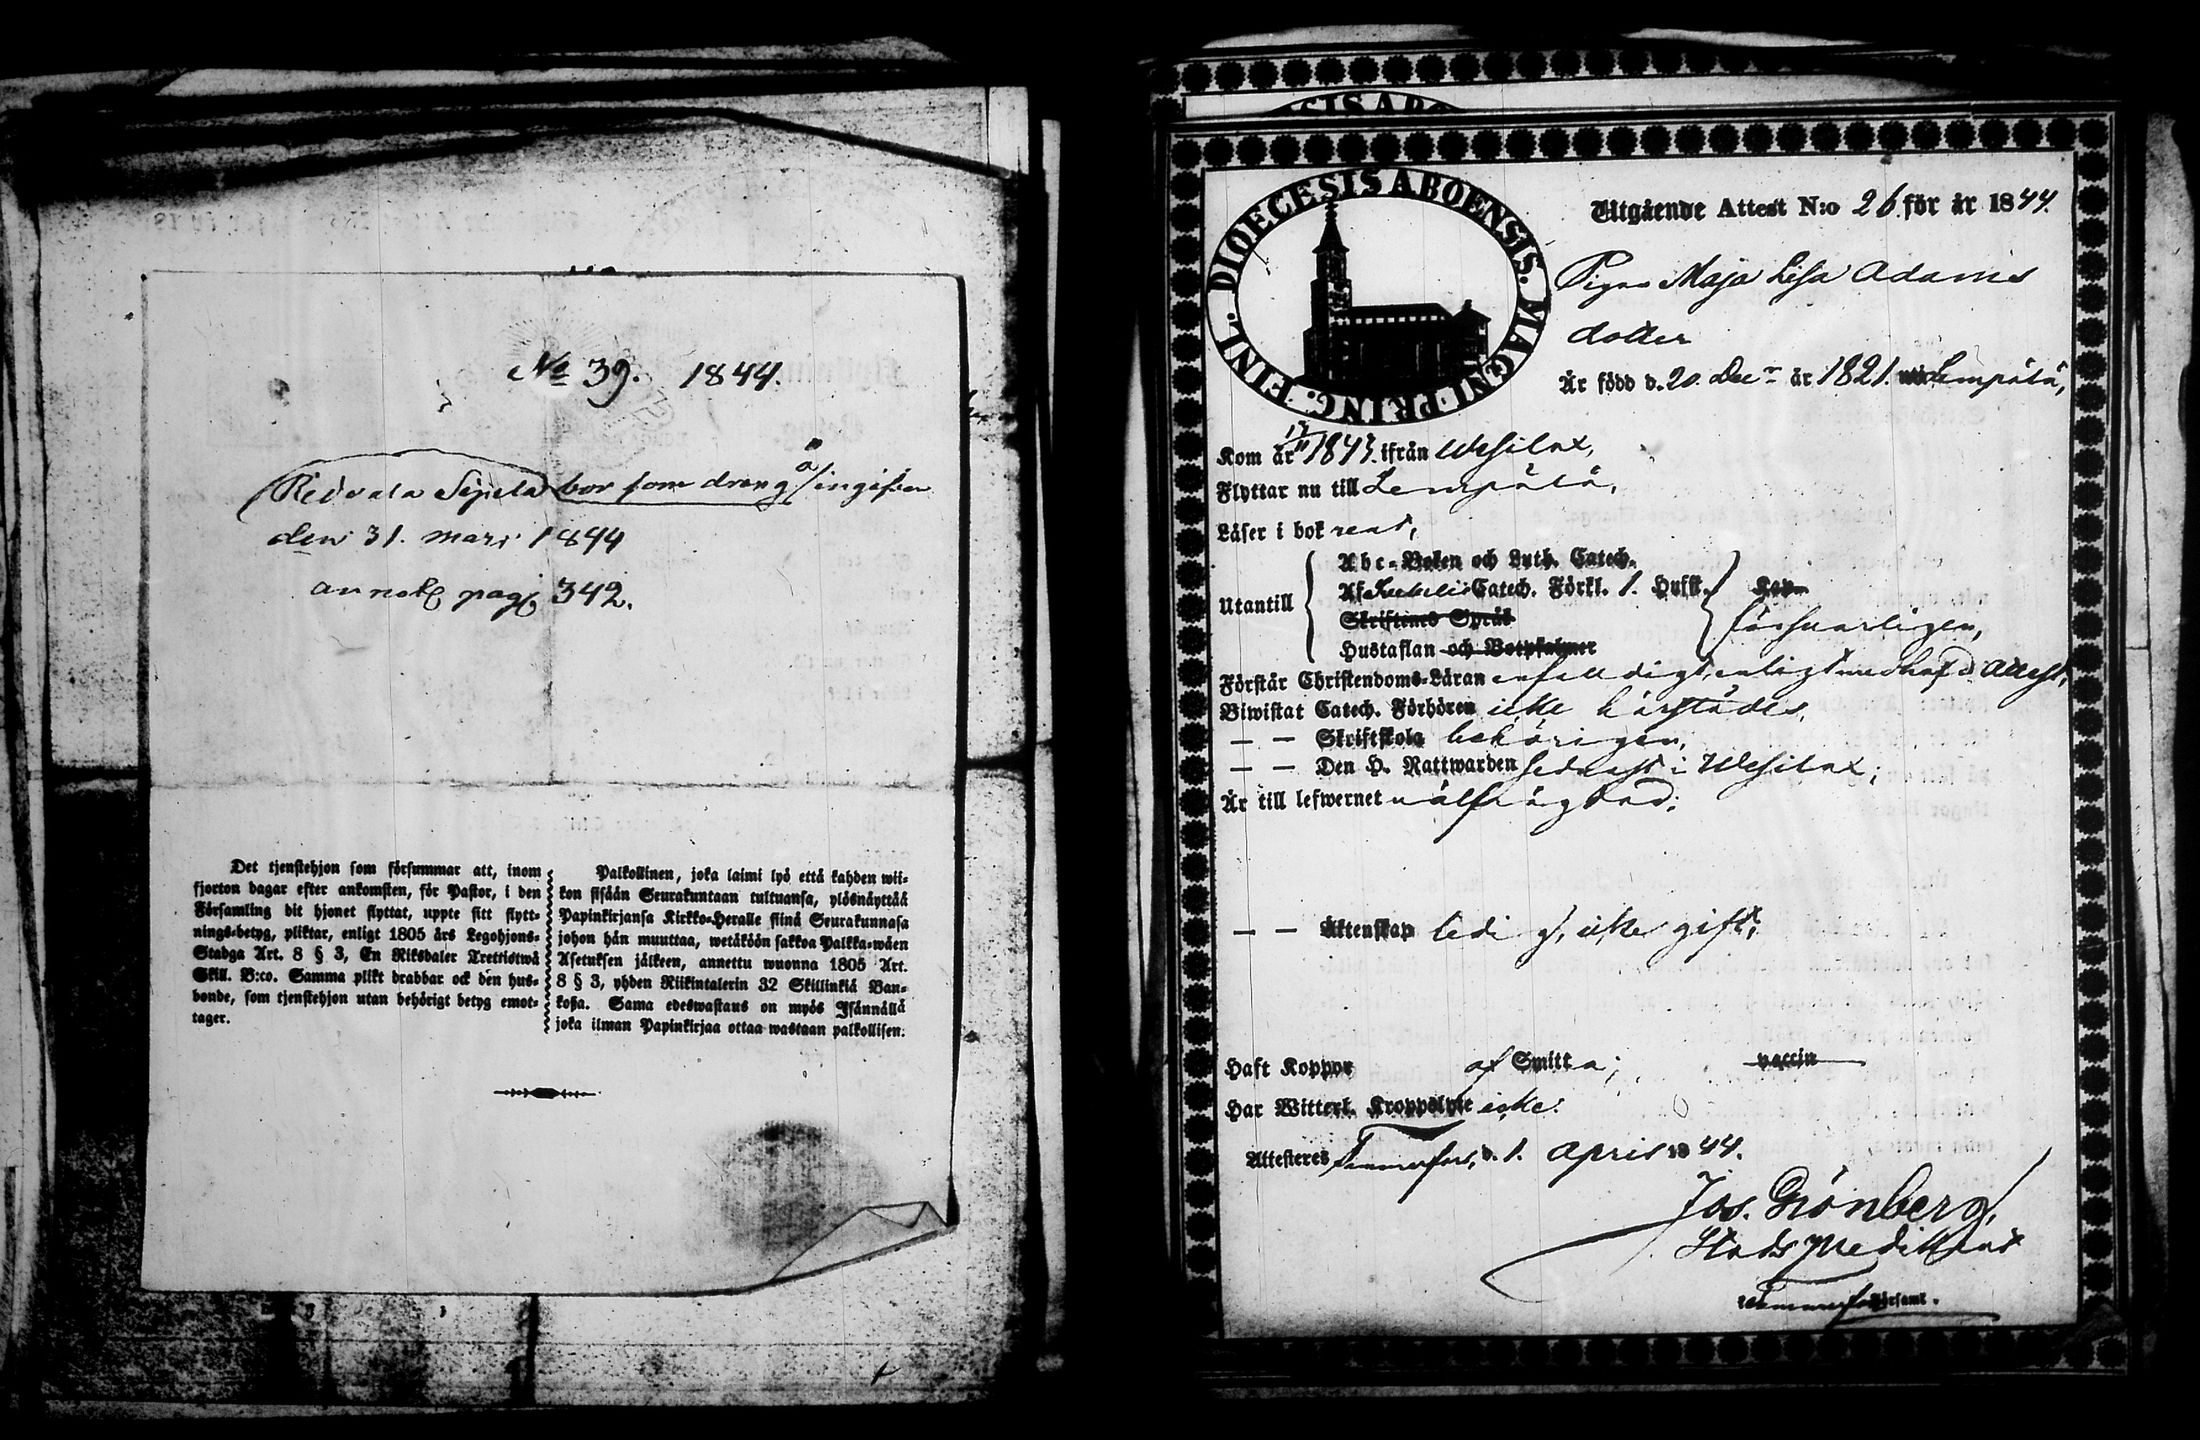 No 39. 1844.
bor som dräng å
den 31. mars 1844
annot. pag. 342.
Det tjenstehjon som försummar att, inom
fjorton dagar efter ankomsten, för Pastor, i den
Församling dit hjonet flyttat, uppte sitt flytt-
nings-betyg, pliktar, enligt 1805 års Legohjons-
Stadga Art. 8 § 3, En Riksdaler Trettiotwå
Skill. B:co. Samma plikt drabbar ock den hus-
bonde, som tjenstehjon utan behörigt betyg emot-
tager.
Palkollinen, joka laimi lyö että kahden wii-
kon sisään Seurakuntaan tultuansa, ylösnäyttää
Papinkirjansa Kirkko-Heralle siinä Seurakunnasa
johon hän muuttaa, wetäköön sakkoa Palkka-wäen
Asetuksen jälkeen, annettu wuonna 1805 Art.
8 § 3, yhden Riikintalerin 32 Skillinkiä Ban-
kosa. Sama edeswastaus on myös Isännällä
joka ilman Papinkirjaa ottaa wastaan palkollisen.
DIOECESIS ABOENSIS. MAGNI PRINC. FINL.
Utgående Attest N:o 26 för år 1844.
Pigan Maja Lisa Adams
dotter
Är född d. 20. Decr år 1821. i Lempälä,
Kom år 17/11 1843. ifrån Wesilax,
Flyttar nu till Lempälä,
Läser i bok rent,
Utantill
Abc-Boken och Luth. Catech.
Af Svebelii Catech. Förkl. 1. Hufst.
Skriftenes Språk
Hustaflan och Botpsalmer
Kan
försvarligen,
Förstår Christendoms-Läran enfaldigt, enligt medhafd Attest,
Biwistat Catech. Förhören icke härstädes,
— — Skriftskola behörigen,
— — Den H. Nattwarden sednast i Wesilax;
Är till lefwernet wälfrägdad;
— — Äktenskap ledig, icke gift;
Haft Koppor af Smitta; vaccin
Har Witterl. Kroppslyte icke.
Attesteres Tammerfors, d. 1. April 1844.
Jos. Grönberg,
Stads Predikant
Tammerfors Församl.